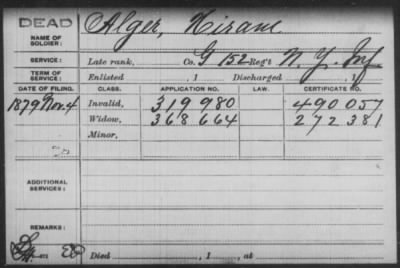 DEAD
NAME OF SOLDIER: Alger, Hiram
SERVICE: Late rank, Co. G 152 Reg't N. Y. Inf
TERM OF SERVICE: Enlisted , 1 Discharged , 1
DATE OF FILING. CLASS. APPLICATION NO. LAW. CERTIFICATE NO.
1879 Nov. 4 Invalid, 319 980 490 057
Widow, 368 664 272 381
Minor,
ADDITIONAL SERVICES:
REMARKS:
Died , 1 , at